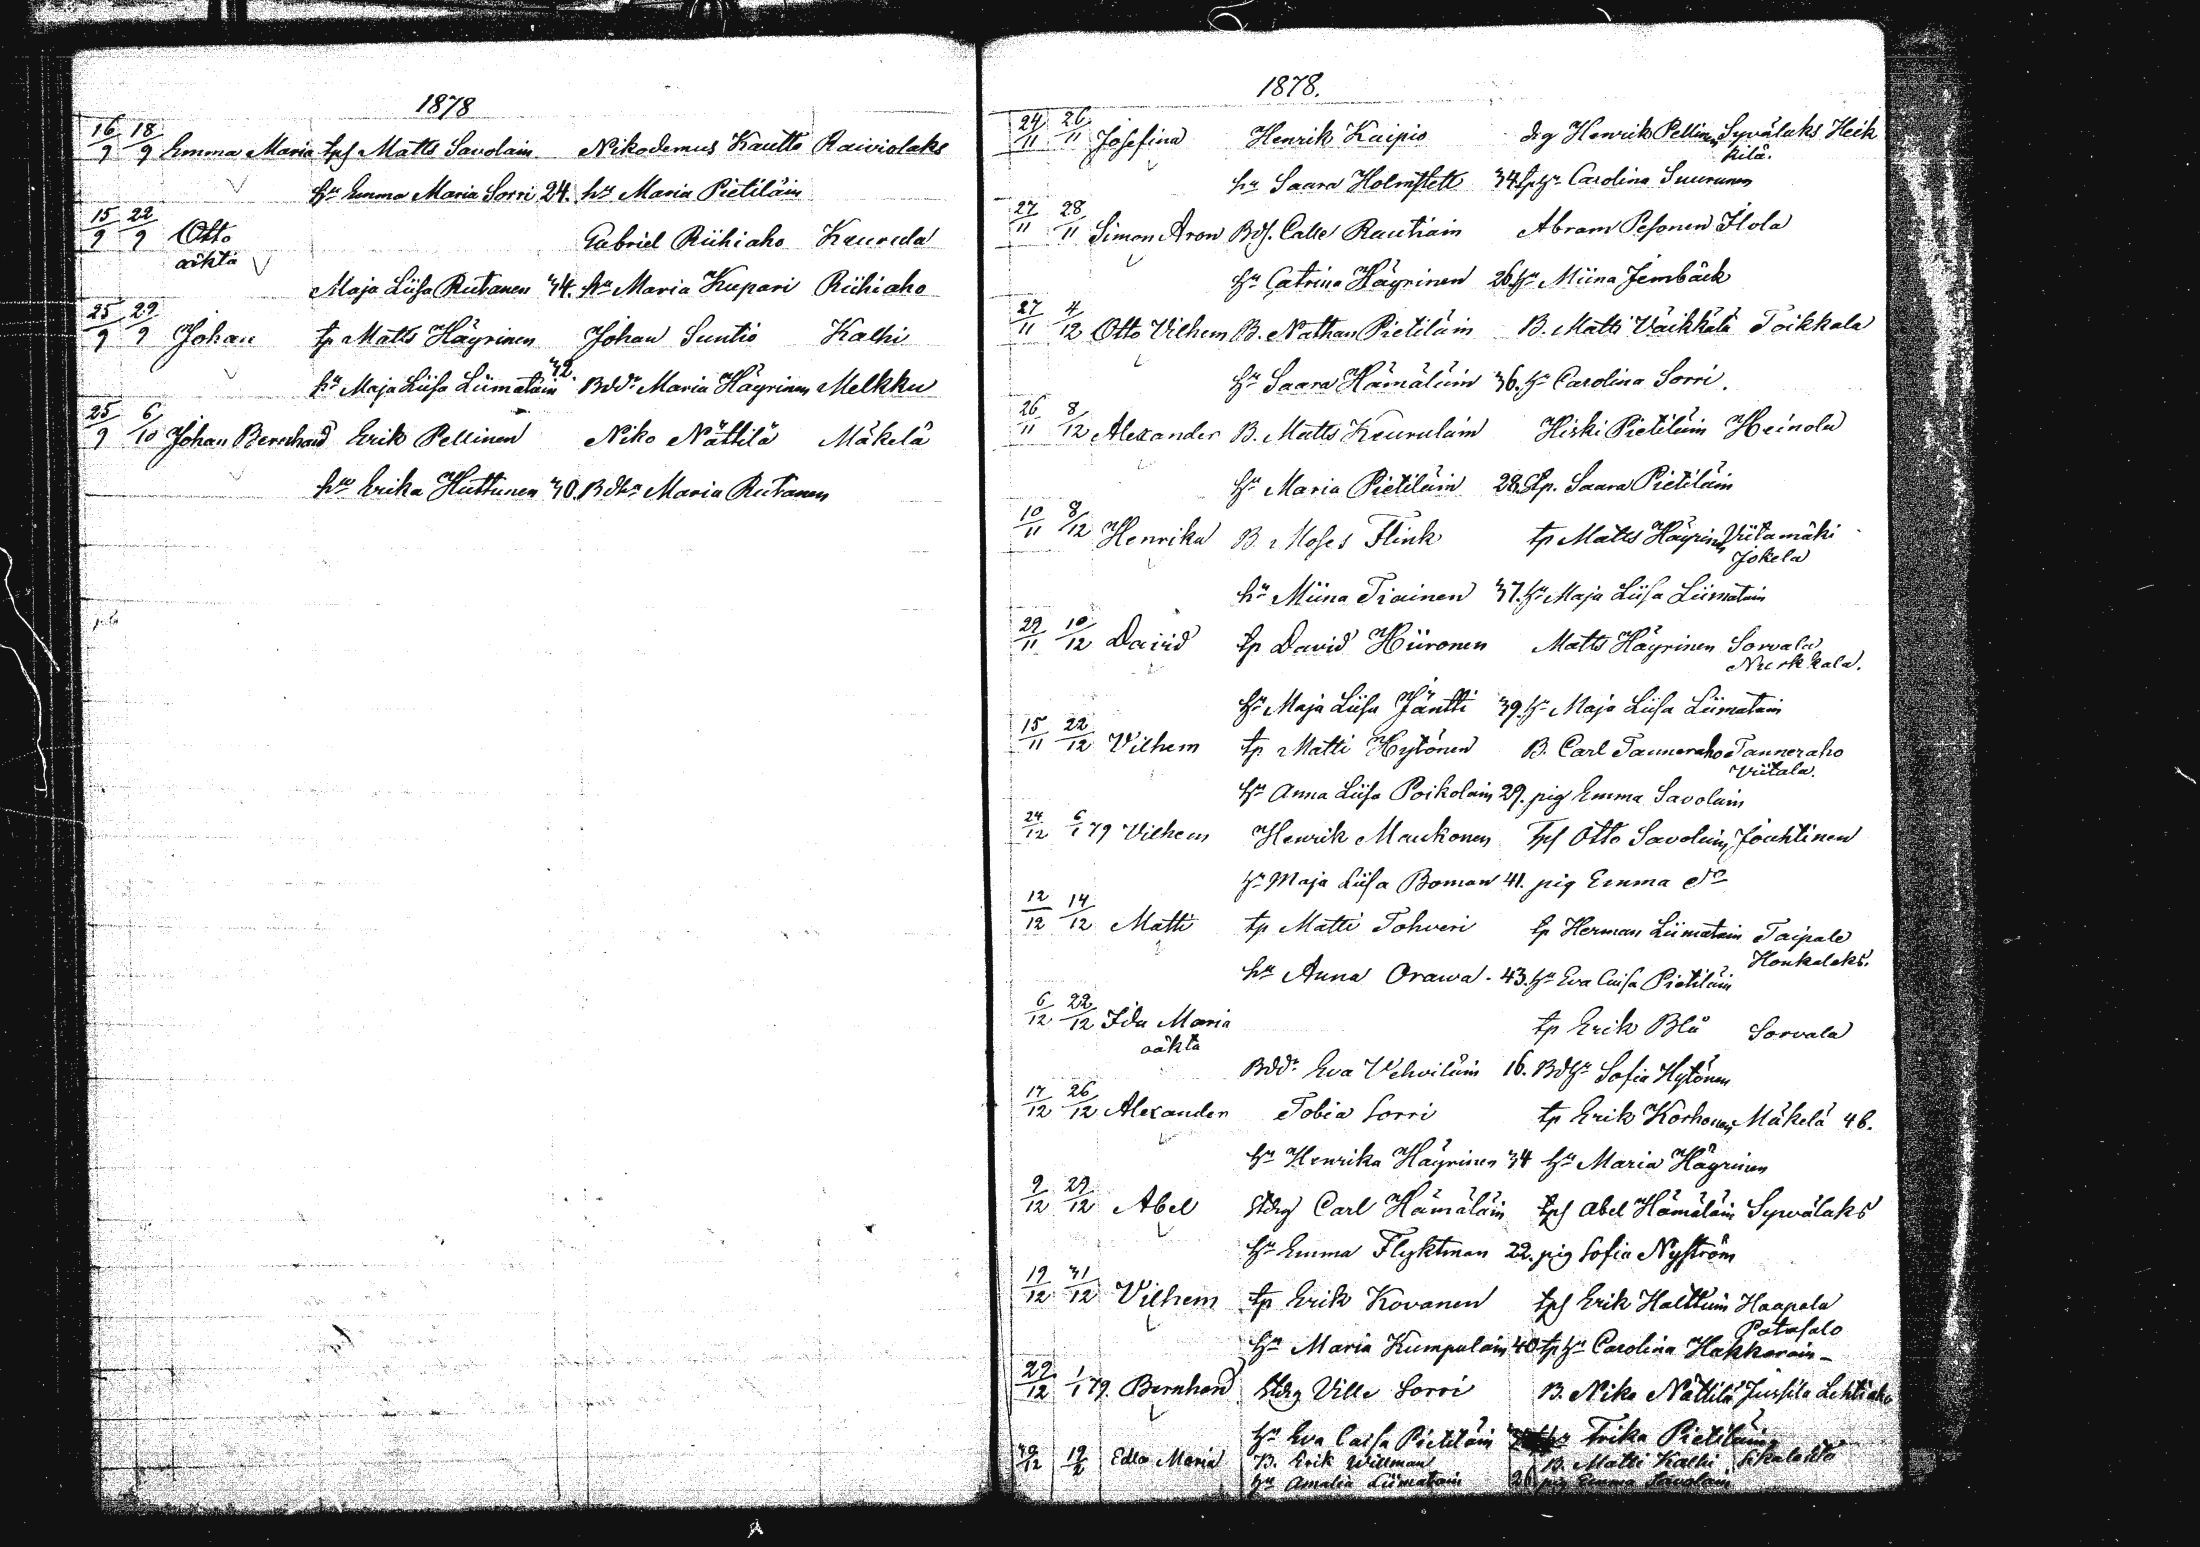 1878
16/9 18/9 Emma Maria tpf Matts Savolain Nikodemus Kautto Raiviolaks
hu Emma Maria Sorri 24. hu Maria Pietiläin
15/9 22/9 Otto Gabriel Riihiaho Keurula
oäkta
Maja Liisa Rutanen 34. hu Maria Kupari Riihiaho
25/9 29/9 Johan tp Matts Häyrinen Johan Suntio Kalhi
hu Maja Liisa Liimatain 32. Bdd. Maria Häyrinen Melkku
25/9 6/10 Johan Bernhard Erik Pellinen Niko Nättilä Mäkelä
hu Erika Huttunen 30. Bdhu Maria Rutanen
1878.
24/11 26/11 Josefina Henrik Kaipio drg Henrik Pellinen Syväluks Heik
kilä.
hu Saara Holmstett 34 tphu Carolina Suurunen
27/11 28/11 Simon Aron Bds. Calle Rautiain Abram Pesonen Ilola
hu Catrina Häyrinen 26. hu Miina Jernbäck
27/11 4/12 Otto Vilhem B. Nathan Pietiläin B. Matti Väikkälä Toikkala
hu Saara Hämäläin 36. hu Carolina Sorri.
26/11 8/12 Alexander B. Matts Keurulain Hiski Pietiläin Heinola
hu Maria Pietiläin 28. tp. Saara Pietiläin
10/11 8/12 Henrika B. Moses Flink tp Matts Häyrinen Viitamäki
Jokela
hu Miina Tiainen 37. hu Maja Liisa Liimatain
29/11 10/12 David tp David Hiironen Matts Häyrinen Sorvala
Nurkkala.
hu Maja Liisa Jäntti 39. hu Maja Liisa Liimatain
15/11 22/12 Vilhem tp Matti Hytönen B. Carl Tanneraho Tanneraho
Viitala.
hu Anna Liisa Poikolain 29. pig Emma Savolain
24/12 6/1 79 Vilhem Henrik Maukonen tpf Otto Savolain Jouhtinen
hu Maja Liisa Boman 41. pig Emma do
12/12 14/12 Matti tp Matti Tohveri tp Herman Liimatain Taipale
Honkalaks.
hu Anna Orawa 43. hu Eva Caisa Pietiläin
6/12 22/12 Ida Maria tp Erik Blå Sorvala
oäkta
Bdd. Eva Vehviläin 16. Bdhu Sofia Hytönen
17/12 26/12 Alexander Tobia Sorri tp Erik Korhonen Mäkelä 48.
hu Henrika Häyrinen 34 hu Maria Häyrinen
9/12 29/12 Abel stdrg Carl Hämäläin tpf Abel Hämäläin Syväluks
hu Emma Flyktman 22. pig Sofia Nyström
19/12 31/12 Vilhem tp Erik Kovanen tpf Erik Halttuin Haapala
Patasalo
hu Maria Kumpulain 40 tphu Carolina Hakkarain
29/12 1/1 79. Bernhard stdrg Ville Sorri B. Niko Nättilä Jussila Lehtiaho
hu Eva Caisa Pietiläin hu Erika Pietiläin
30/12 19/2 Edla Maria B. Erik Willman B. Matti Kalhi
hu Amalia Liimatain 26 pig Emma Savolain